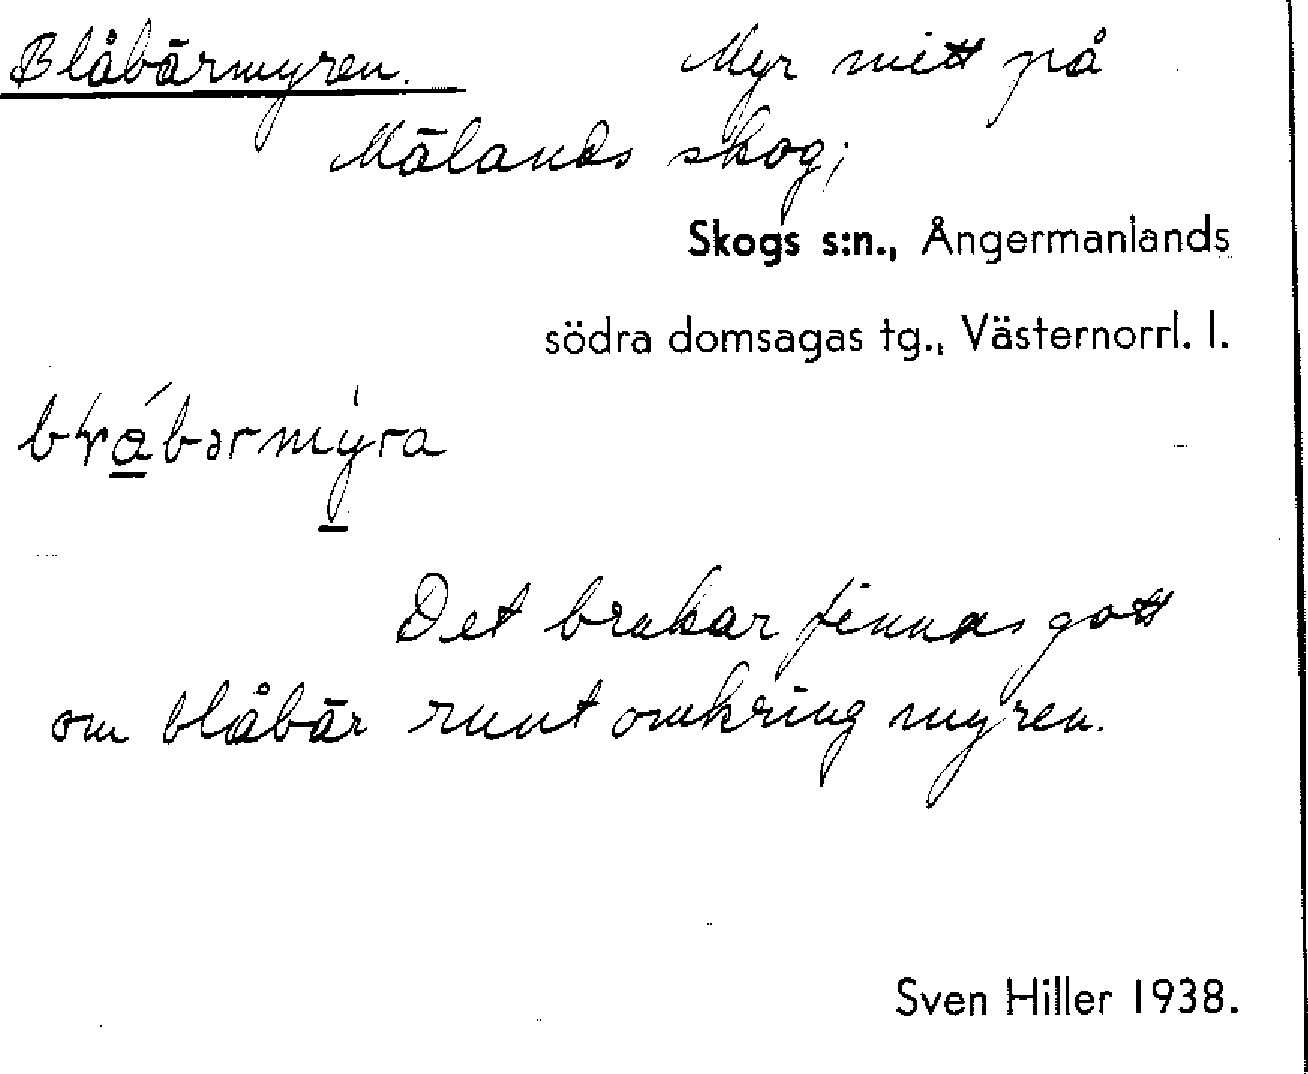 Blåbärmyren. Myr mitt på
Mälands skog;
Skogs s:n., Ångermanlands
södra domsagas tg., Västernorrl. l.
Det brukar finnas gott
om blåbär runt omkring myren.
Sven Hiller 1938.